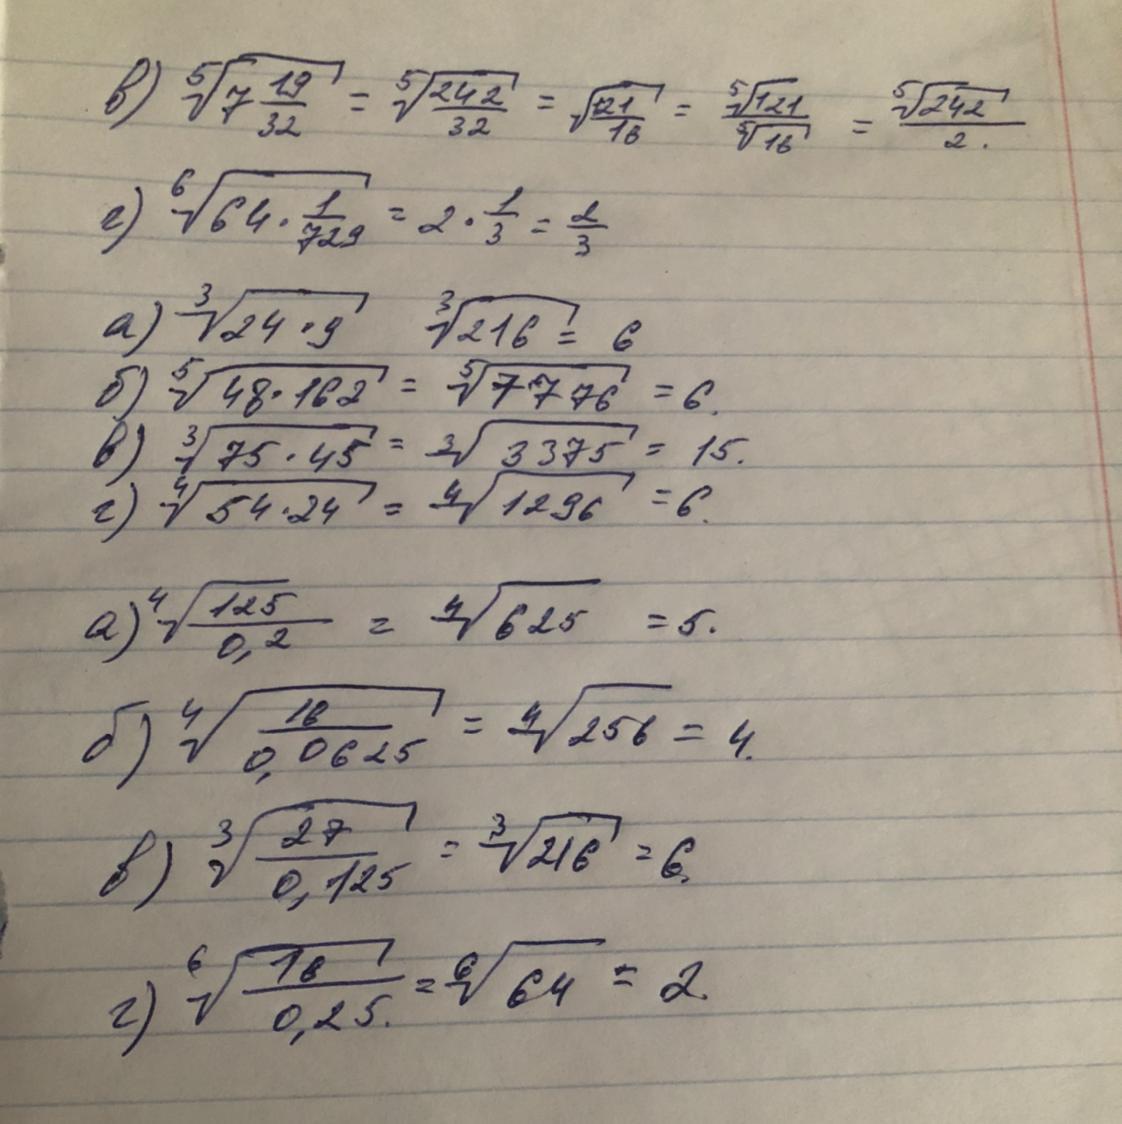 в) ⁵√(7 19/32) = ⁵√(242/32) = √(121/16) = ⁵√121/⁵√16 = ⁵√242/2.
г) ⁶√(64 · 1/729) = 2 · 1/3 = 2/3
а) ³√(24 · 9) ³√216 = 6
б) ⁵√(48 · 162) = ⁵√7776 = 6.
в) ³√(75 · 45) = ³√3375 = 15.
г) ⁴√(54 · 24) = ⁴√1296 = 6.
а) ⁴√(125/0,2) = ⁴√625 = 5.
б) ⁴√(16/0,0625) = ⁴√256 = 4.
в) ³√(27/0,125) = ³√216 = 6.
г) ⁶√(16/0,25.) = ⁶√64 = 2.